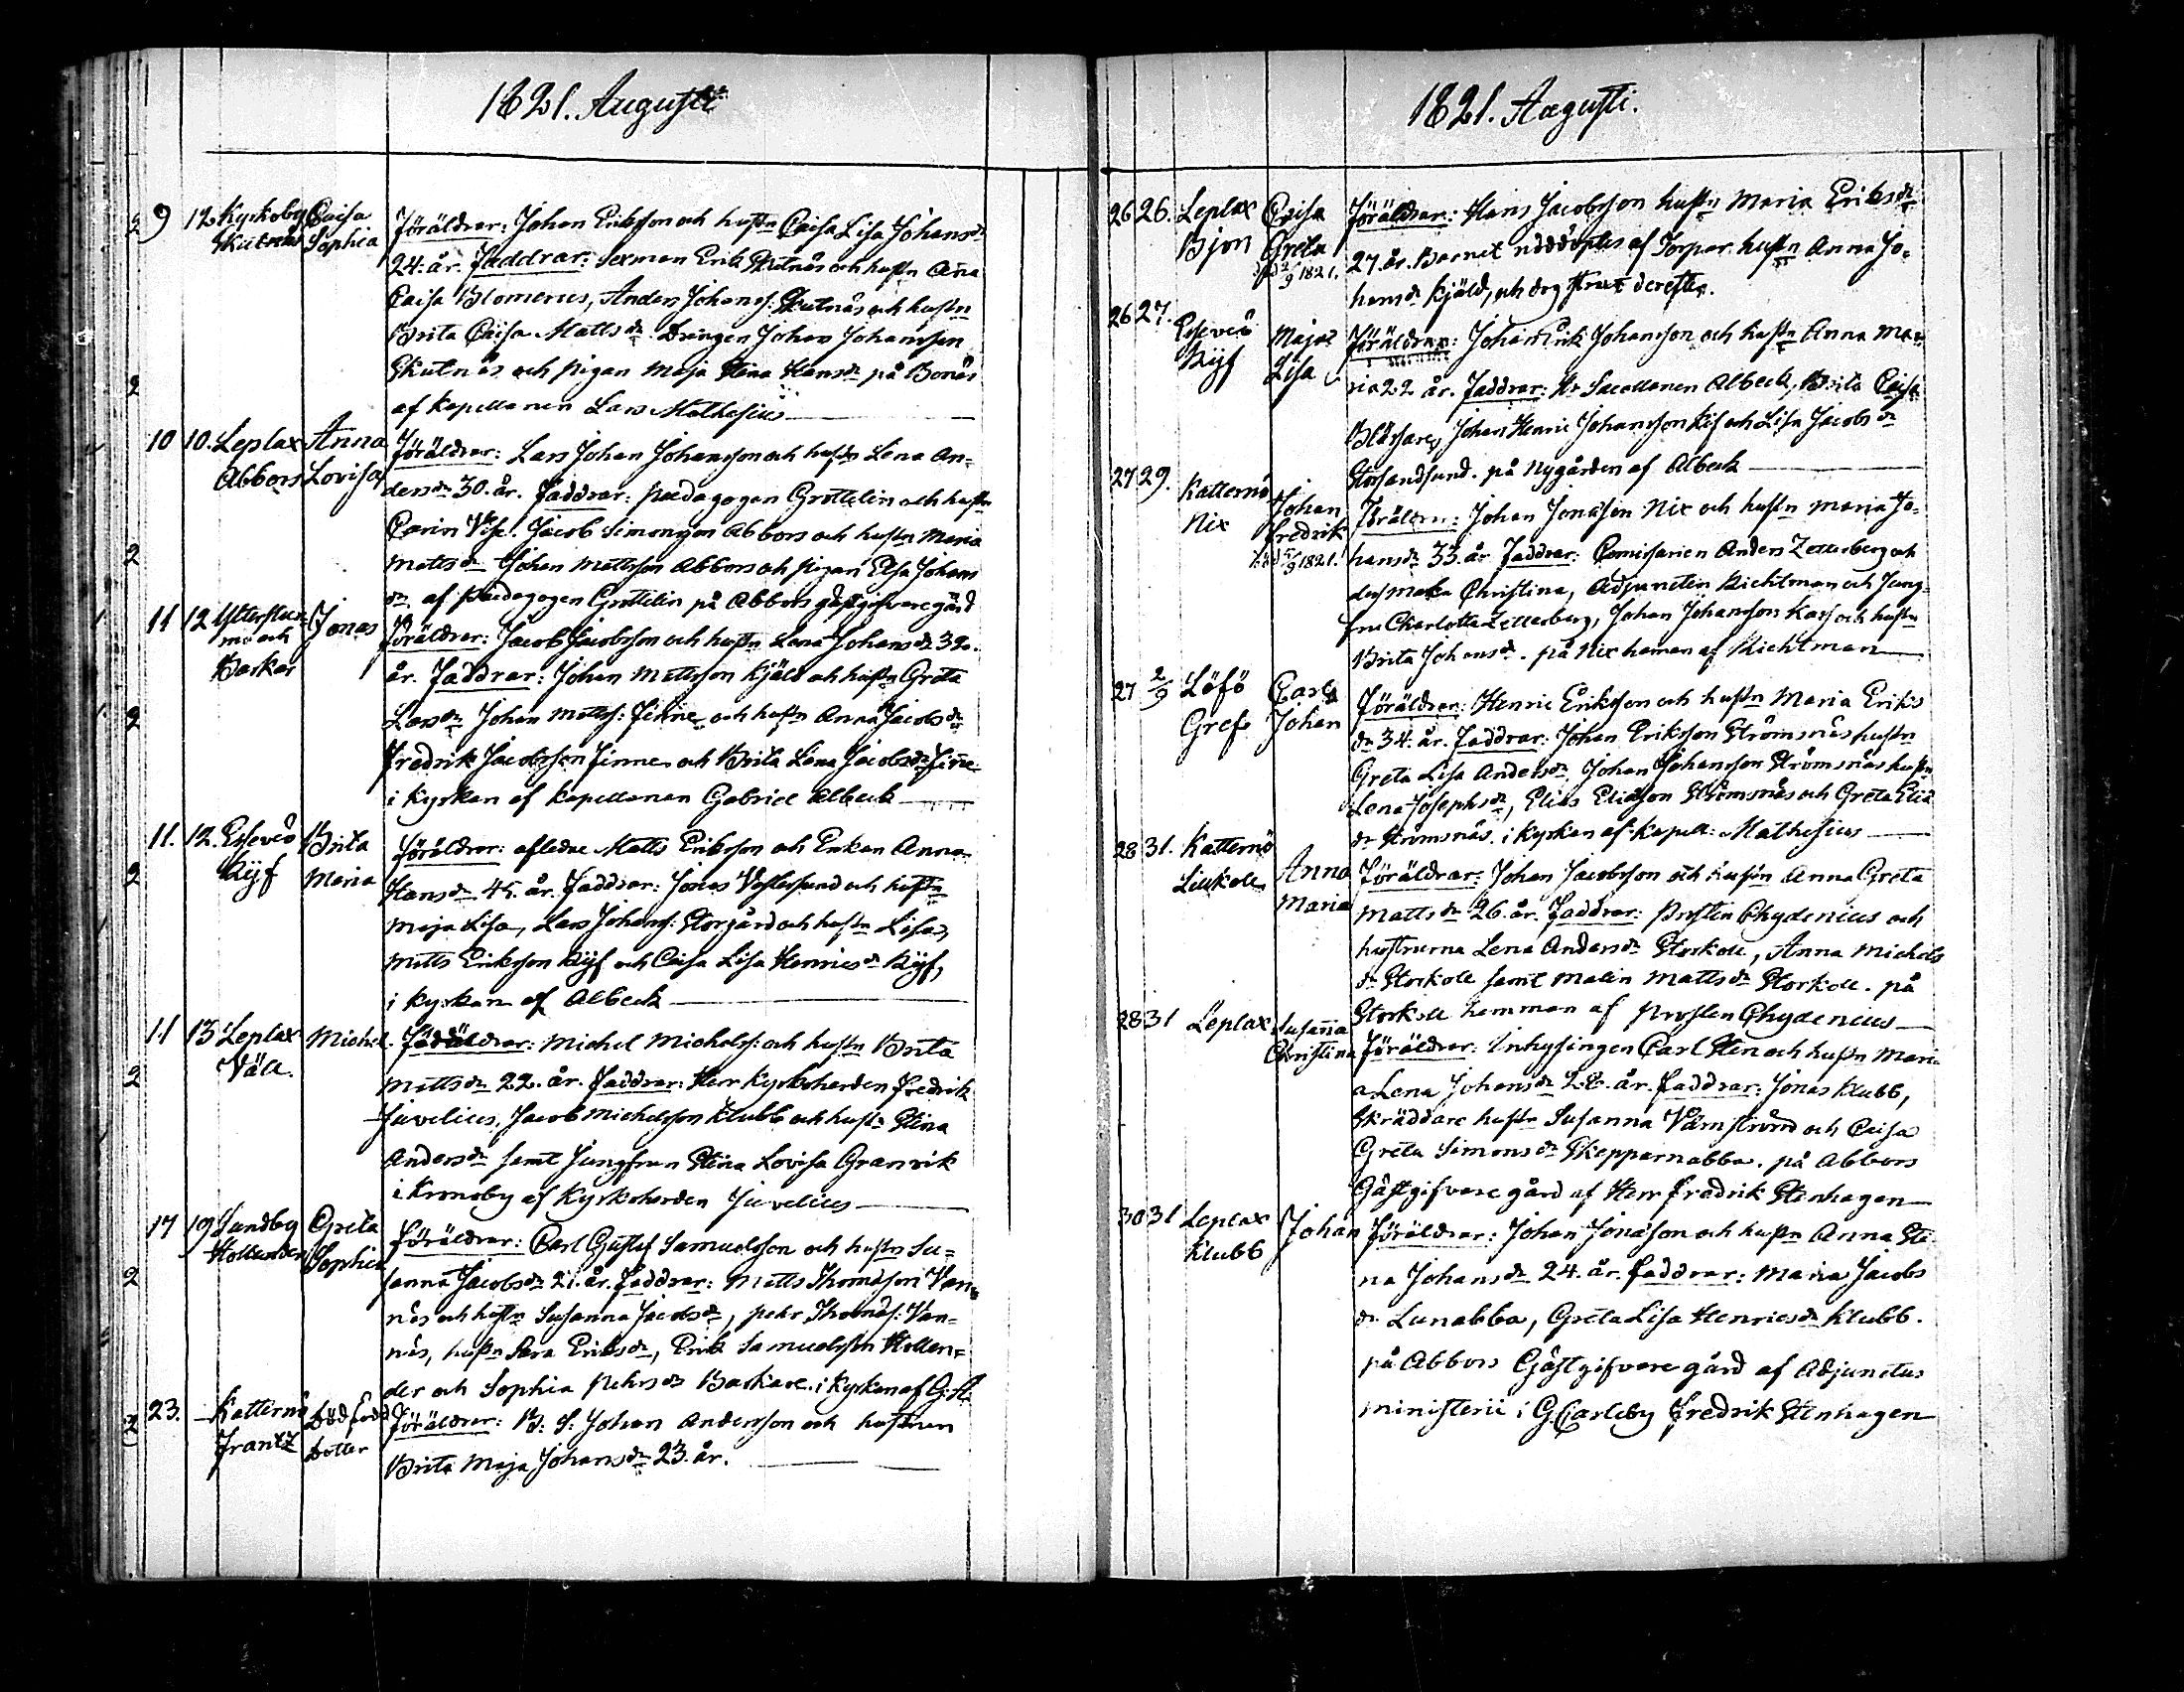 1821. Augusti
9 12. Kyrkoby Caisa Föräldrar: Johan Eriksson och hustn Caisa Lisa Johansdr
Skutnäs Sophia
24. år. Faddrar: Sexman Erik Skutnäs och hustn Anna
Caisa Blomerus, Anders Johans: Skutnäs och hustn
Brita Caisa Mattsdr Drängen Johan Johansson
Skutnäs och Pigan Maja Stina Hansdr på Bonäs
af Kapellanen Lars Mathesius
10 10. Leplax Anna Föräldrar: Lars Johan Johansson och hustn Lena An-
Abbors Lovisa dersdr 30. år. Faddrar: pædagogen Grottelin och hustn
Carin Jacob Simonsson Abbors och hustn Maria
Mattsdr Johan Mattsson Abbors och pigan Elsa Johans
dr af Pædagogen Grottelin på Abbors gästgifvaregård
11 12 Jonas Föräldrar: Jacob Jacobsson och hustn Lena Johansdr 32.
mö och
Backar år. Faddrar: Johan Mattsson Kjäld och hustn Greta
Larsdr Johan Matts: Finne och hustn Anna Jacobsdr
Fredrik Jacobsson Finne och Brita Lena Jacobsdr Finne
i Kyrkan af Kapellanen Gabriel Albeck
11. 12. Esseviö Brita Föräldrar: afledne Matts Eriksson och Enkan Anna
Kyf Maria Hansdr 45. år. Faddrar: Jonas Vestersund och hustn
Maja Lisa, Lars Johans: Storgård och hustn Lisa,
Matts Eriksson Kyf och Caisa Lisa Henricsdr Kyf,
i Kyrkan af Albeck
11 13 Leplax Michel. Föräldrar: Michel Michels: och hustn Brita
Väll. Mattsdr 22. år. Faddrar: Herr Kyrkoherden Fredrik
Juvelius, Jacob Michelsson Klubb och hustn Stina
Andersdr samt Jungfrun Stina Lovisa Granvik
i Kronoby af Kyrkoherden Juvelius
17 19 Sundby Greta Föräldrar: Carl Gustaf Samuelsson och hustn Su-
Hollender Sophia sanna Jacobsdr 21. år. Faddrar: Matts Thomasson Van-
näs och hustn Susanna Jacobsdr, Pehr Thomas: Van-
näs, hustn Sara Eriksdr, Erik Samuelsson Hollen-
der och Sophia Pehrsdr Backare. i Kyrkan af G: A:
23. Katternö Dödfödd Föräldrar: B: S: Johan Andersson och hustrun
Frantz Dotter Brita Maja Johansdr 23. år.
1821. Augusti.
26 26. Leplax Caisa Föräldrar: Hans Jacobsson hustn Maria Eriksdr
Bjon Greta 27. år. Barnet nöddöptes af Torpar hustn Anna Jo-
död 2/9 1821. hansdr Kjäld, och dog strax derefter.
26 27. Esseviö Maja Föräldrar: Johan Erik Johansson och hustn Anna Ma-
Kyf Lisa ria 22 år. Faddrar: Hr Sacellanen Albeck, Brita Caisa
Johan Henric Johansson Kyf och Lisa Jacobsdr
Storsandsund. på Nygården af Albeck
27 29. Katternö Johan Föräldrar: Johan Jonasson Nix och hustn Maria Jo-
Nix Fredrik
död 5/9 1821. hansdr 33. år Faddrar: Comissarien Anders Zetterberg och
des maka Christina, Adjuncten Richtman och Jung-
frun Charlotta Zetterberg, Johan Johansson Kass och hustn
Brita Johansdr. på Nix heman af Richtman
27 2/9 Löfö Carl Föräldrar: Henric Eriksson och hustn Maria Eriks
Gref Johan dr 34. år. Faddrar: Johan Eriksson Strömsnäs hustn
Greta Lisa Andersdr, Johan Johansson Strömsnäs hustn
Lena Josephsdr, Elias Eliasson Strömsnäs och Greta Elia
dr Strömsnäs. i Kyrkan af Kapell: Mathesius
28 31. Katternö Anna Föräldrar: Johan Jacobsson och hustn Anna Greta
Liukoll Maria Mattsdr 26. år. Faddrar: Prosten Chydenius och
hustrurna Lena Andersdr Storkoll, Anna Michels
dr Storkoll samt Malin Mattsdr Storkoll. på
Storkoll hemman af Prosten Chydenius
28 31 Leplax Susanna
Christina Föräldrar: Inhysingen Carl Sten och hustn Mari-
a Lena Johansdr 28. år. Faddrar: Jonas Klubb,
Skräddare hustn Susanna och Caisa
Greta Simonsdr Skepparnabba. på Abbors
Gästgifvare gård af Herr Fredrik Stenhagen
30 31 Leplax Johan Föräldrar: Johan Jonasson och hustn Anna Sti-
Klubb na Johansdr 24. år. Faddrar: Maria Jacobs
dr Lunabba, Greta Lisa Henricsdr Klubb.
på Abbors Gästgifvare gård af Adjunctus
Ministerii i G. Carleby Fredrik Stenhagen